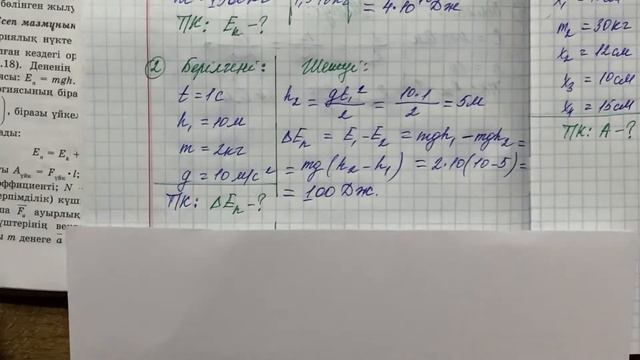 бөлінген жылу
есеп мазмұнын
риялық нүкте
лған кездегі ор
.18). Дененің
ясы: Eₙ = mgh.
огиясының біра
, біразы үйкел
ады:
Eₙ = Eₖ +
фициенті; N –
ерпімділік) күш
ауырлық
ы m денеге a
ПК: Eₙ - ?
Дж
② Берілгені:
t = 1с
h₁ = 10м
m = 2кг
g = 10м/с²
ПК: ΔEₙ - ?
Шешуі:
h₂ = gt₁²/2 = 10·1/2 = 5м
ΔEₙ = E₁ - E₂ = mgh₁ - mgh₂ =
= mg(h₂ - h₁) = 2·10(10-5) =
= 100 Дж.
m₂ = 30кг
x₂ = 12см
x₃ = 10см
x₄ = 15см
ПК: A - ?